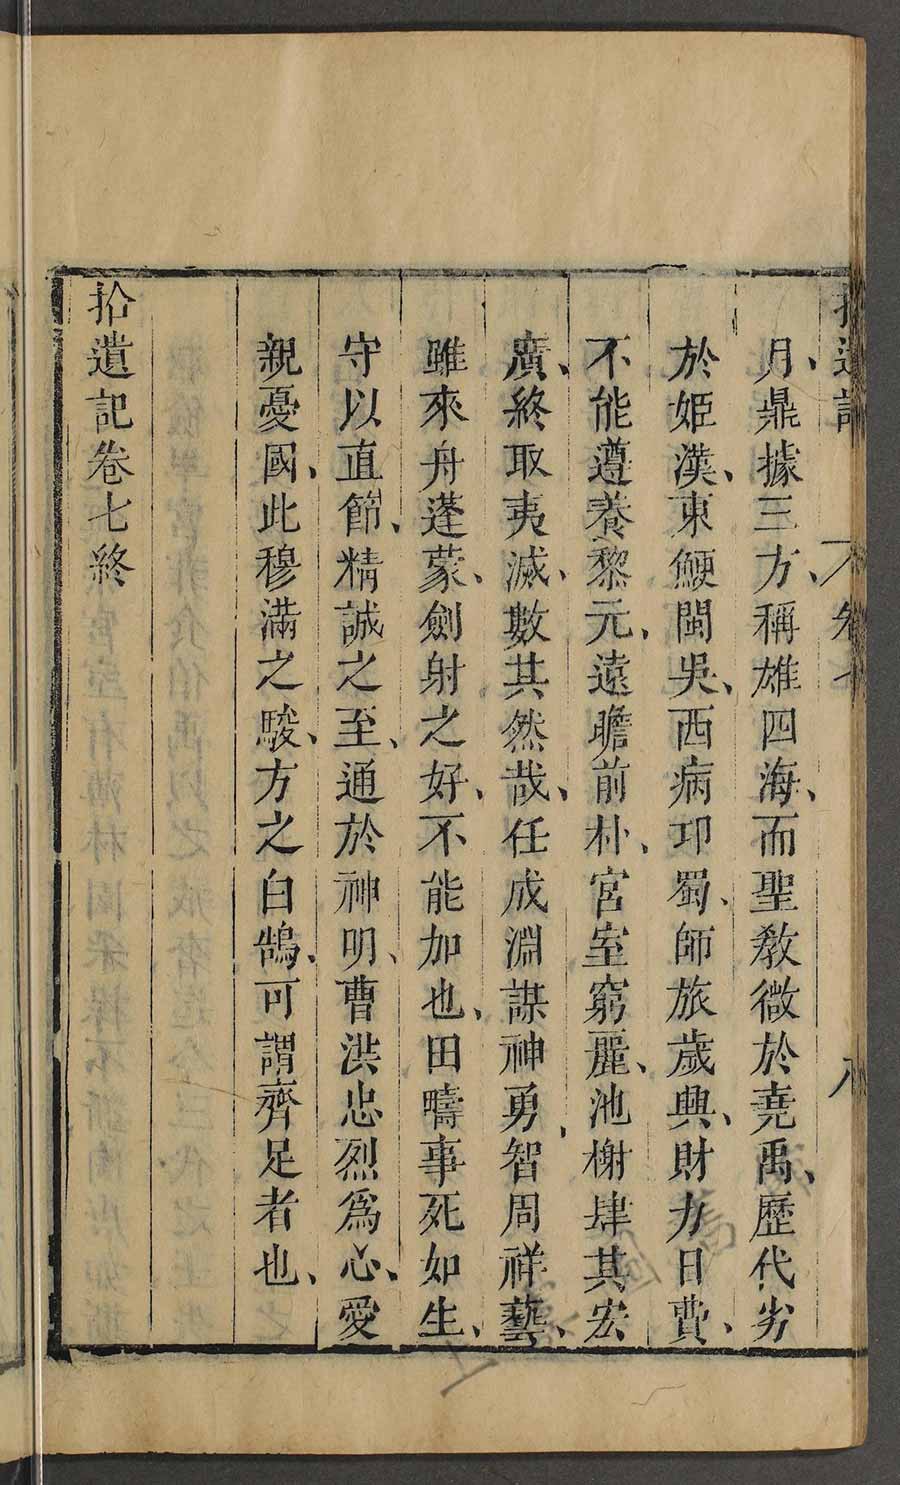 拾遺記 卷七 八
月、鼎據三方、稱雄四海、而聖敎微於堯禹、歷代劣
於姬漢、東鯁閩吳、西病邛蜀、師旅歲興、財力日費、
不能遵養黎元、遠瞻前朴、宮室窮麗、池榭肆其宏
廣、終取夷滅、數其然哉、任成淵謀神勇、智周祥藝、
雖來舟蓬蒙、劍射之好、不能加也、田疇事死如生、
守以直節、精誠之至、通於神明、曹洪忠烈爲心、愛
親憂國、此穆滿之駿、方之白鵠、可謂齊足者也、
拾遺記卷七終